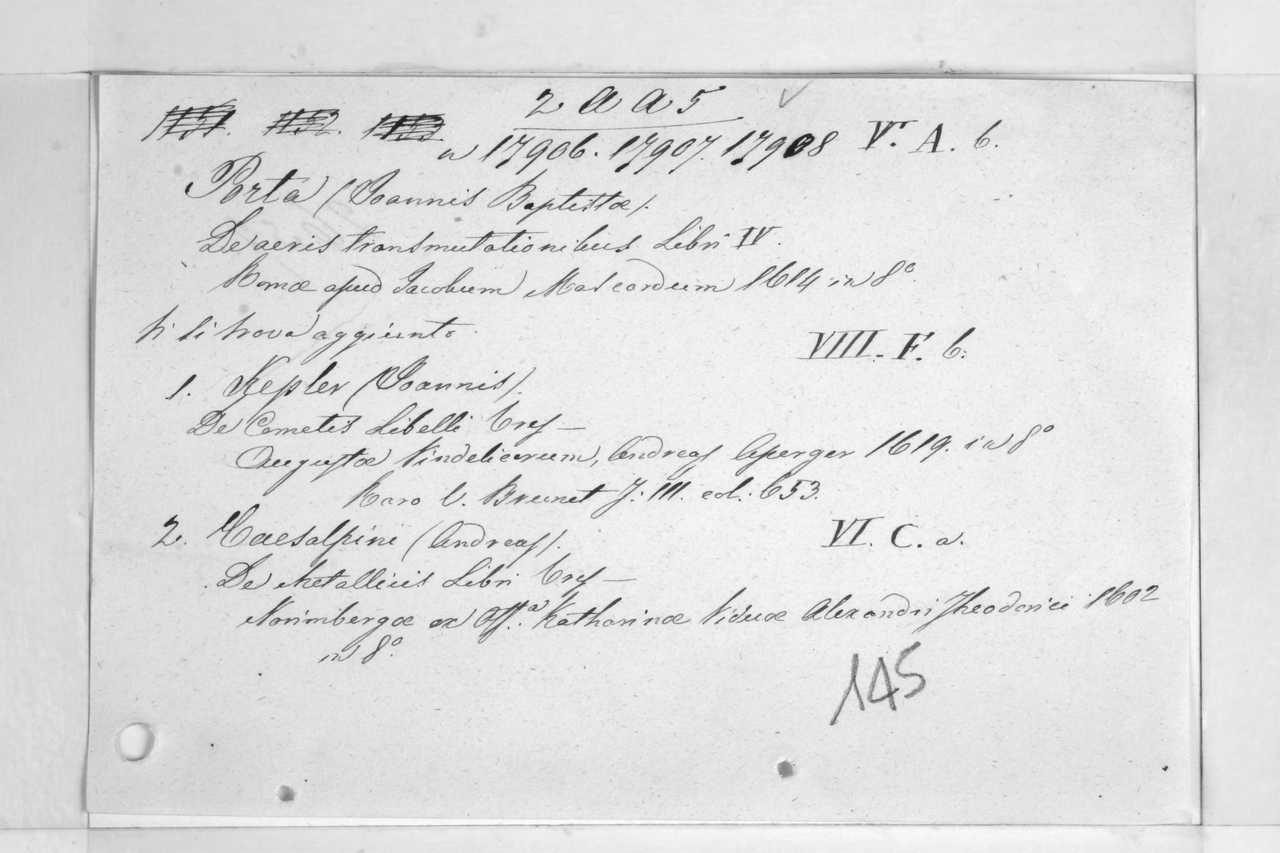 2 a a 5
n 17906. 17907. 17908 V. A. b.
Porta (Joannis Baptistae).
De aeris transmutationibus Libri IV.
Romae apud Jacobum Mascardum 1614 in 8°
Vi si trova aggiunto
VIII. F. b:
1. Kepler (Joannis).
De Cometis Libelli Tres —
Augustae Vindelicorum, Andreas Asperger 1619. in 8°
Raro V. Brunet T: III. col: 653.
2. Caesalpini (Andreas). VI. C. a.
De Metallicis Libri Tres —
Norimbergae ex Off.a Katharinae Viduae Alexandri Theodorici 1602
in 8°.
145